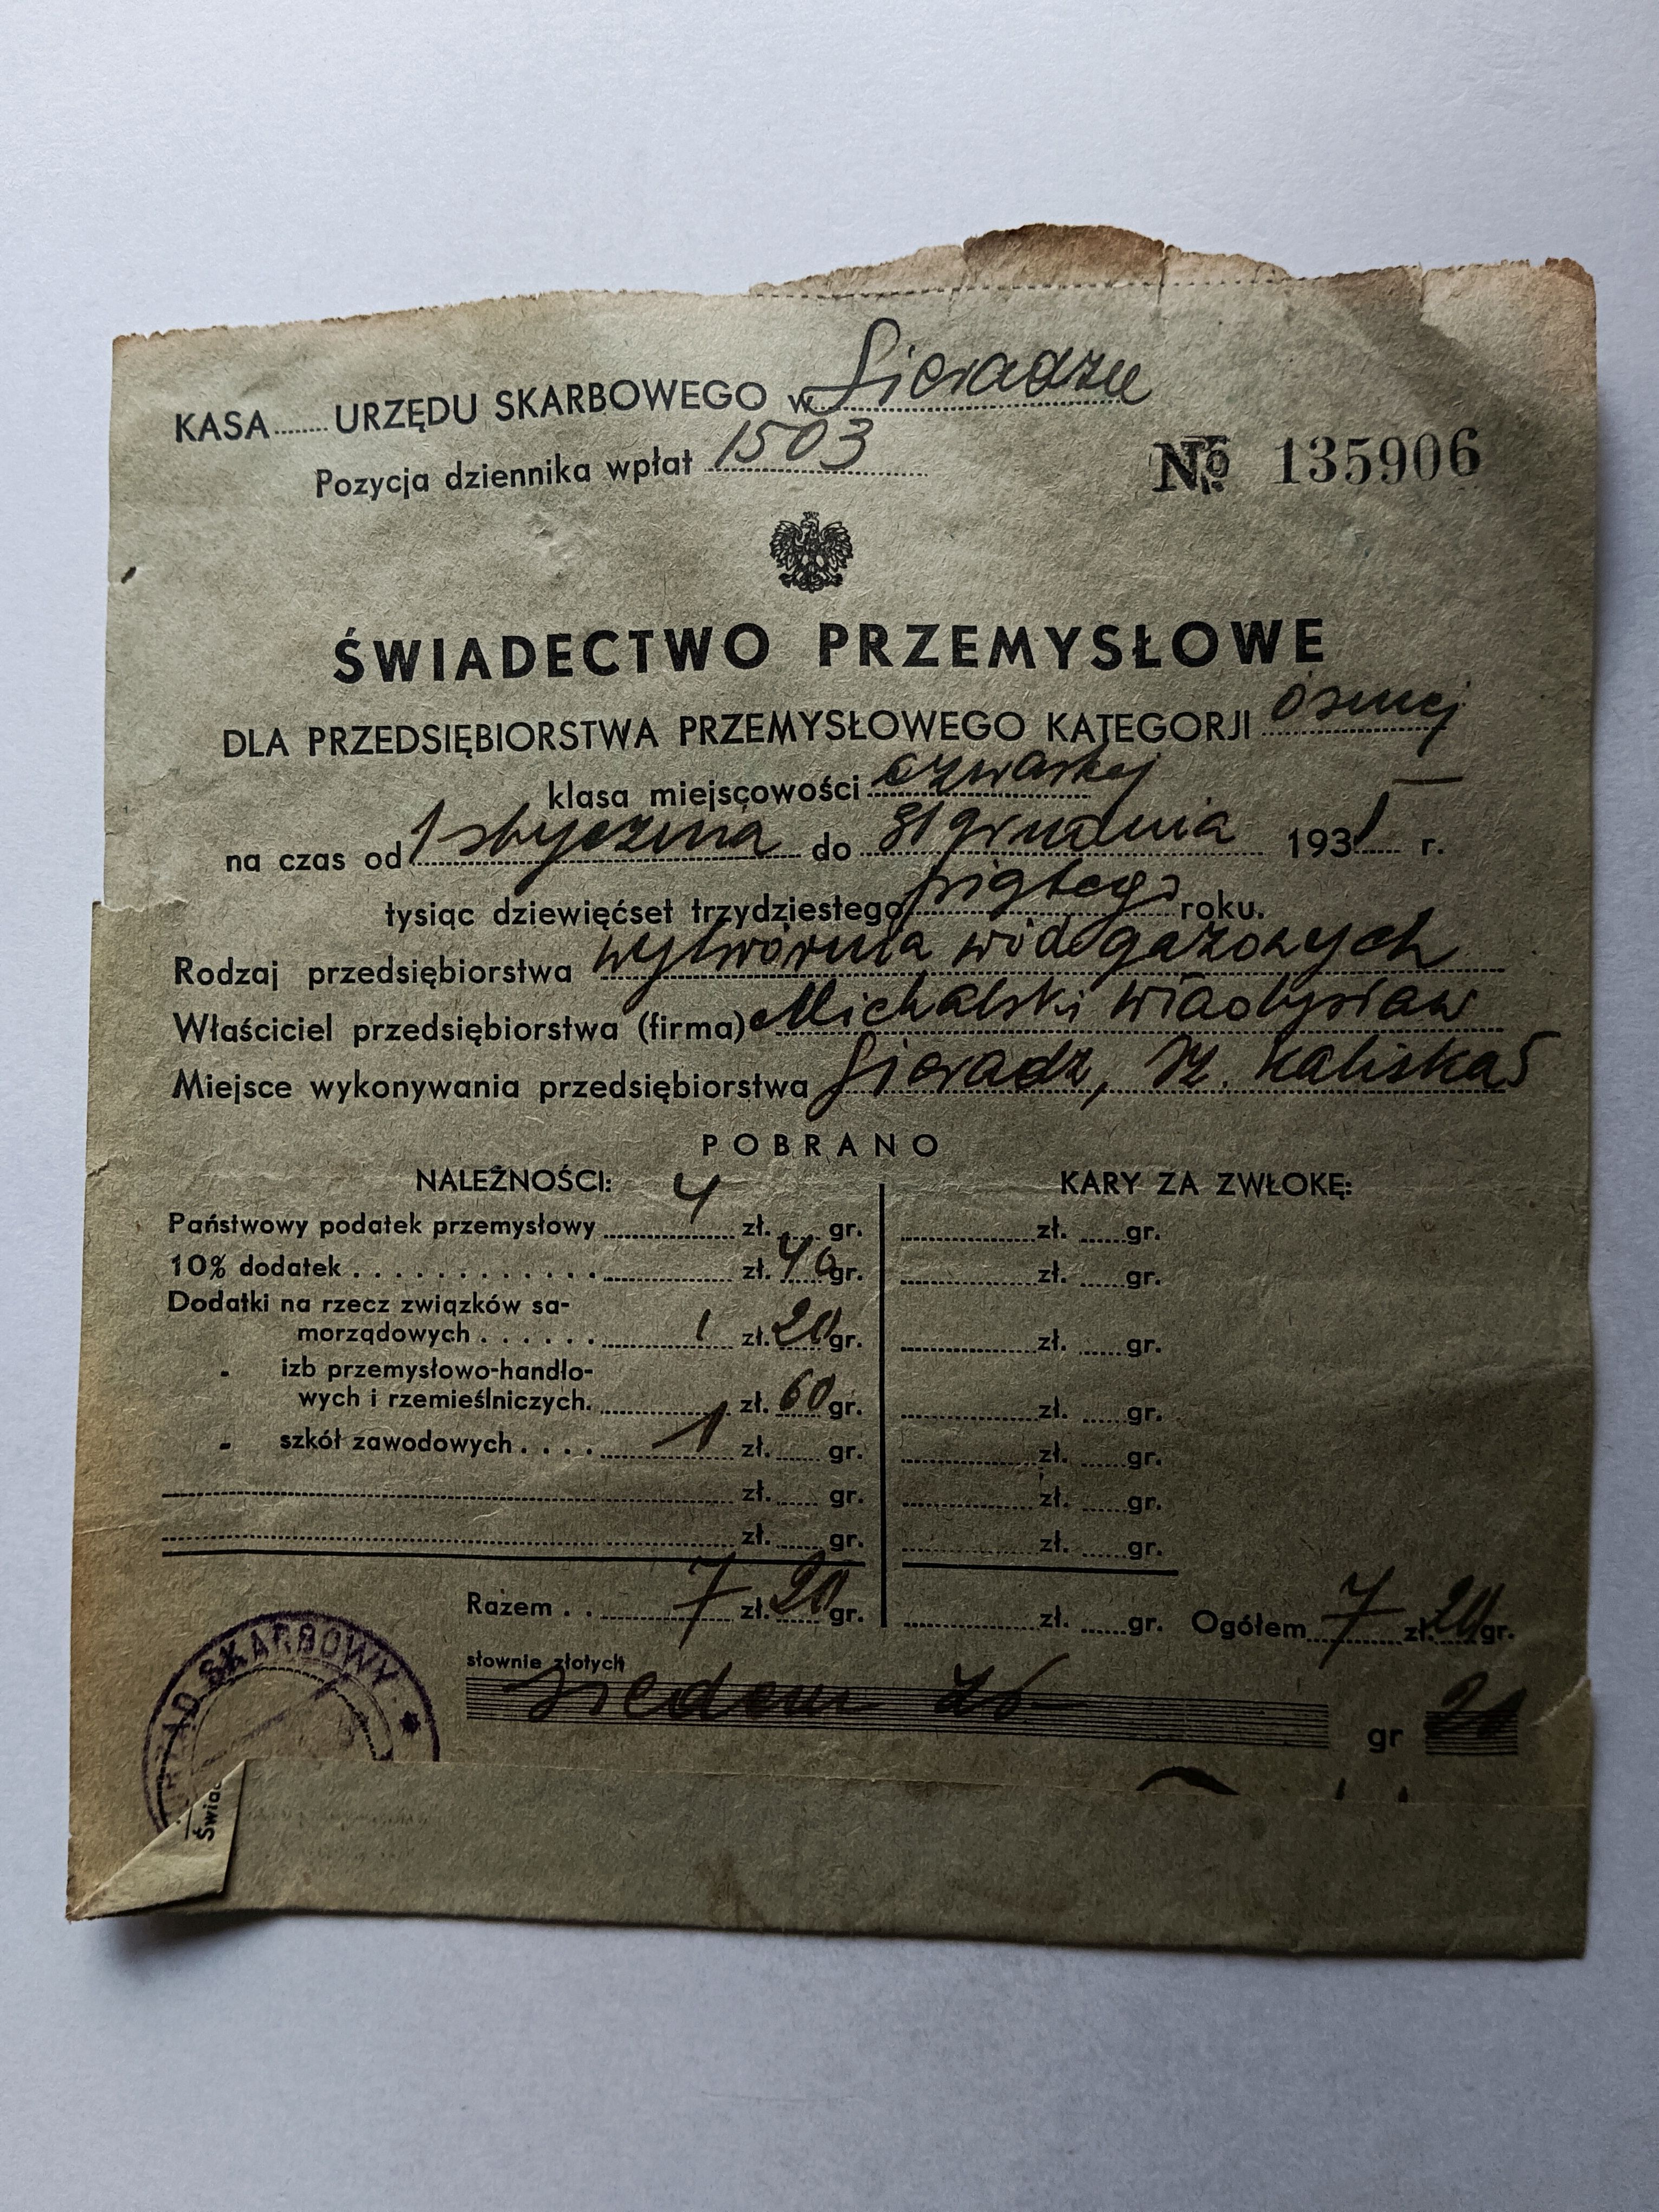 KASA ........ URZĘDU SKARBOWEGO w Sieradzu
Pozycja dziennika wpłat 1503
№ 135906
ŚWIADECTWO PRZEMYSŁOWE
DLA PRZEDSIĘBIORSTWA PRZEMYSŁOWEGO KATEGORJI ósmej
klasa miejscowości czwartej
na czas od 1 stycznia do 31 grudnia 193 r.
tysiąc dziewięćset trzydziestego piątego roku.
Rodzaj przedsiębiorstwa wytwórnia wód gazowych
Właściciel przedsiębiorstwa (firma) Michalski Władysław
Miejsce wykonywania przedsiębiorstwa Sieradz, Kaliska 5
POBRANO
NALEŻNOŚCI: KARY ZA ZWŁOKĘ:
Państwowy podatek przemysłowy 4 zł. gr. zł. gr.
10% dodatek zł. 40 gr. zł. gr.
Dodatki na rzecz związków sa-
morządowych 1 zł. 20 gr. zł. gr.
" izb przemysłowo-handlo-
wych i rzemieślniczych. zł. 60 gr. zł. gr.
" szkół zawodowych 1 zł. gr. zł. gr.
zł. gr. zł. gr.
zł. gr. zł. gr.
Razem 7 zł. 20 gr. zł. gr. Ogółem 7 zł. 20 gr.
słownie złotych
siedem zł gr 20
URZĄD SKARBOWY
Świad